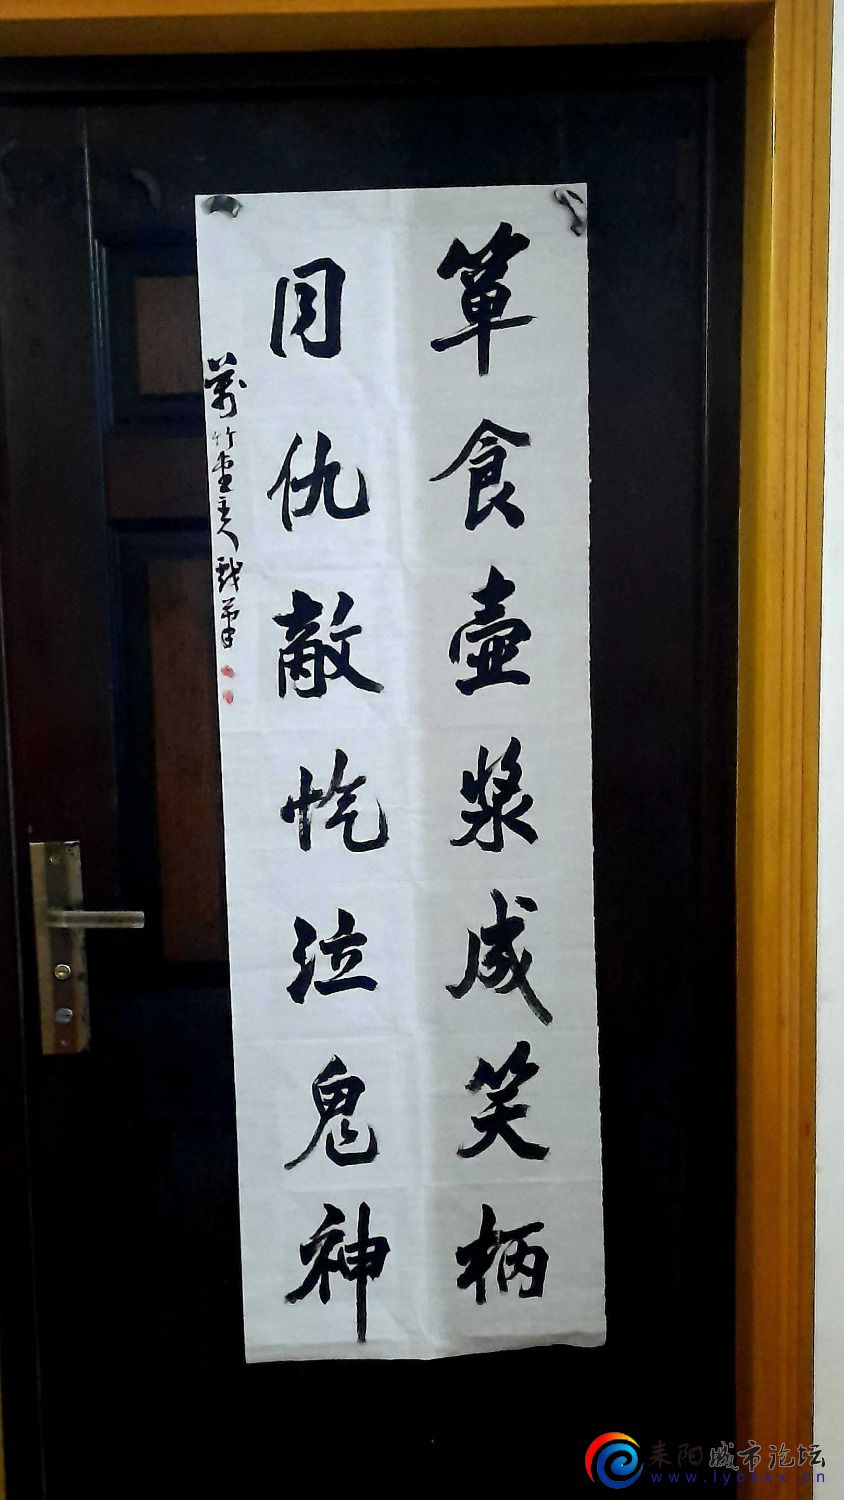 箪食壶浆成笑柄
同仇敵忾泣鬼神
萬竹堂主人戏筆
耒阳城市论坛
www.lycsxx.cn